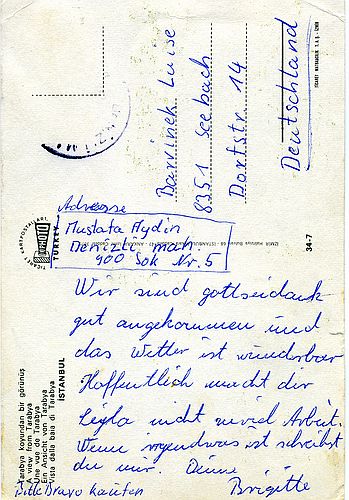 Barvinek Luise
8351 Seebach
Dorfstr. 14
Deutschland
Adresse
Mustafa Aydin
Denizli mah.
900 Sok Nr. 5
Wir sind gottseidank
gut angekommen und
das Wetter ist wunderbar
Hoffentlich macht dir
Leyla nicht zuviel Arbeit.
Wenn irgendwas ist schreibst
du mir. Deine
Brigitte
Bitte Bravo kaufen
İSTANBUL
Tarabya koyundan bir görünüş
A view from Tarabya
Une vue de Tarabya
Ein Ansicht von Tarabya
Vista dalla baia di Tarabya
TİCARET KARTPOSTALLARI
TURKEY
34-7